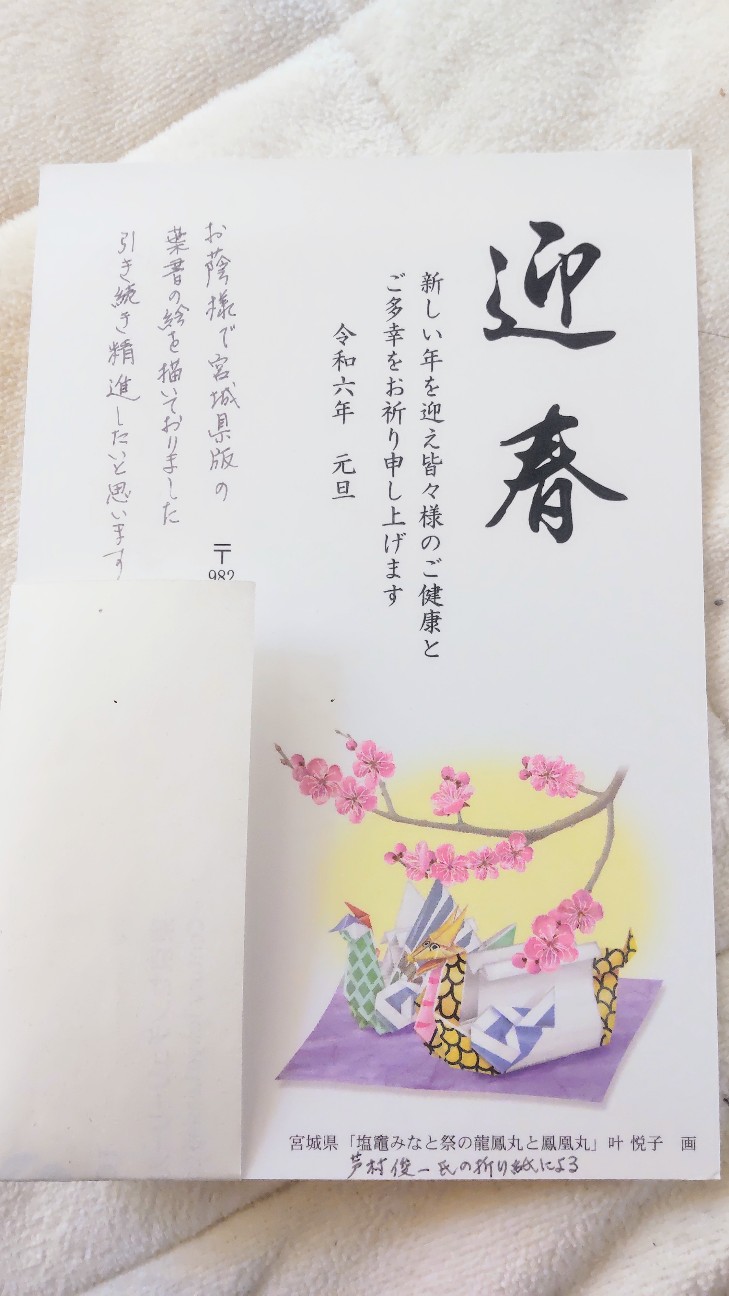 迎春
新しい年を迎え皆々様のご健康と
ご多幸をお祈り申し上げます
令和六年 元旦
お蔭様で宮城県版の
葉書の絵を描いておりました
引き続き精進したいと思います
〒982
宮城県「塩竈みなと祭の龍鳳丸と鳳凰丸」叶 悦子 画
芦村俊一氏の折り紙による